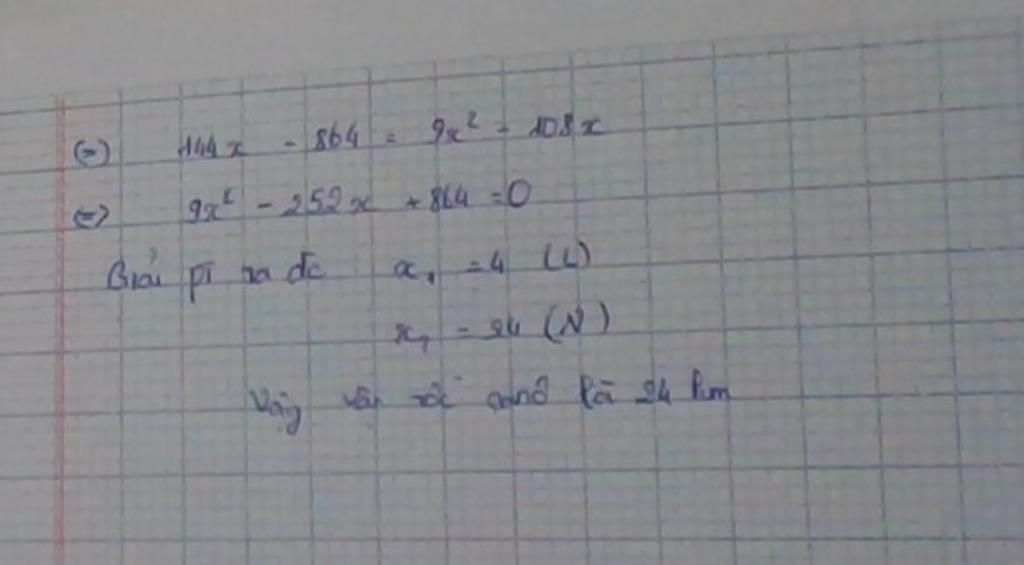 (=) 144x - 864 = 9x² - 108x
(=) 9x² - 252x + 864 = 0
Giải pt ra đc x₁ = 4 (L)
x₂ = 24 (N)
Vậy vận tốc canô là 24 km